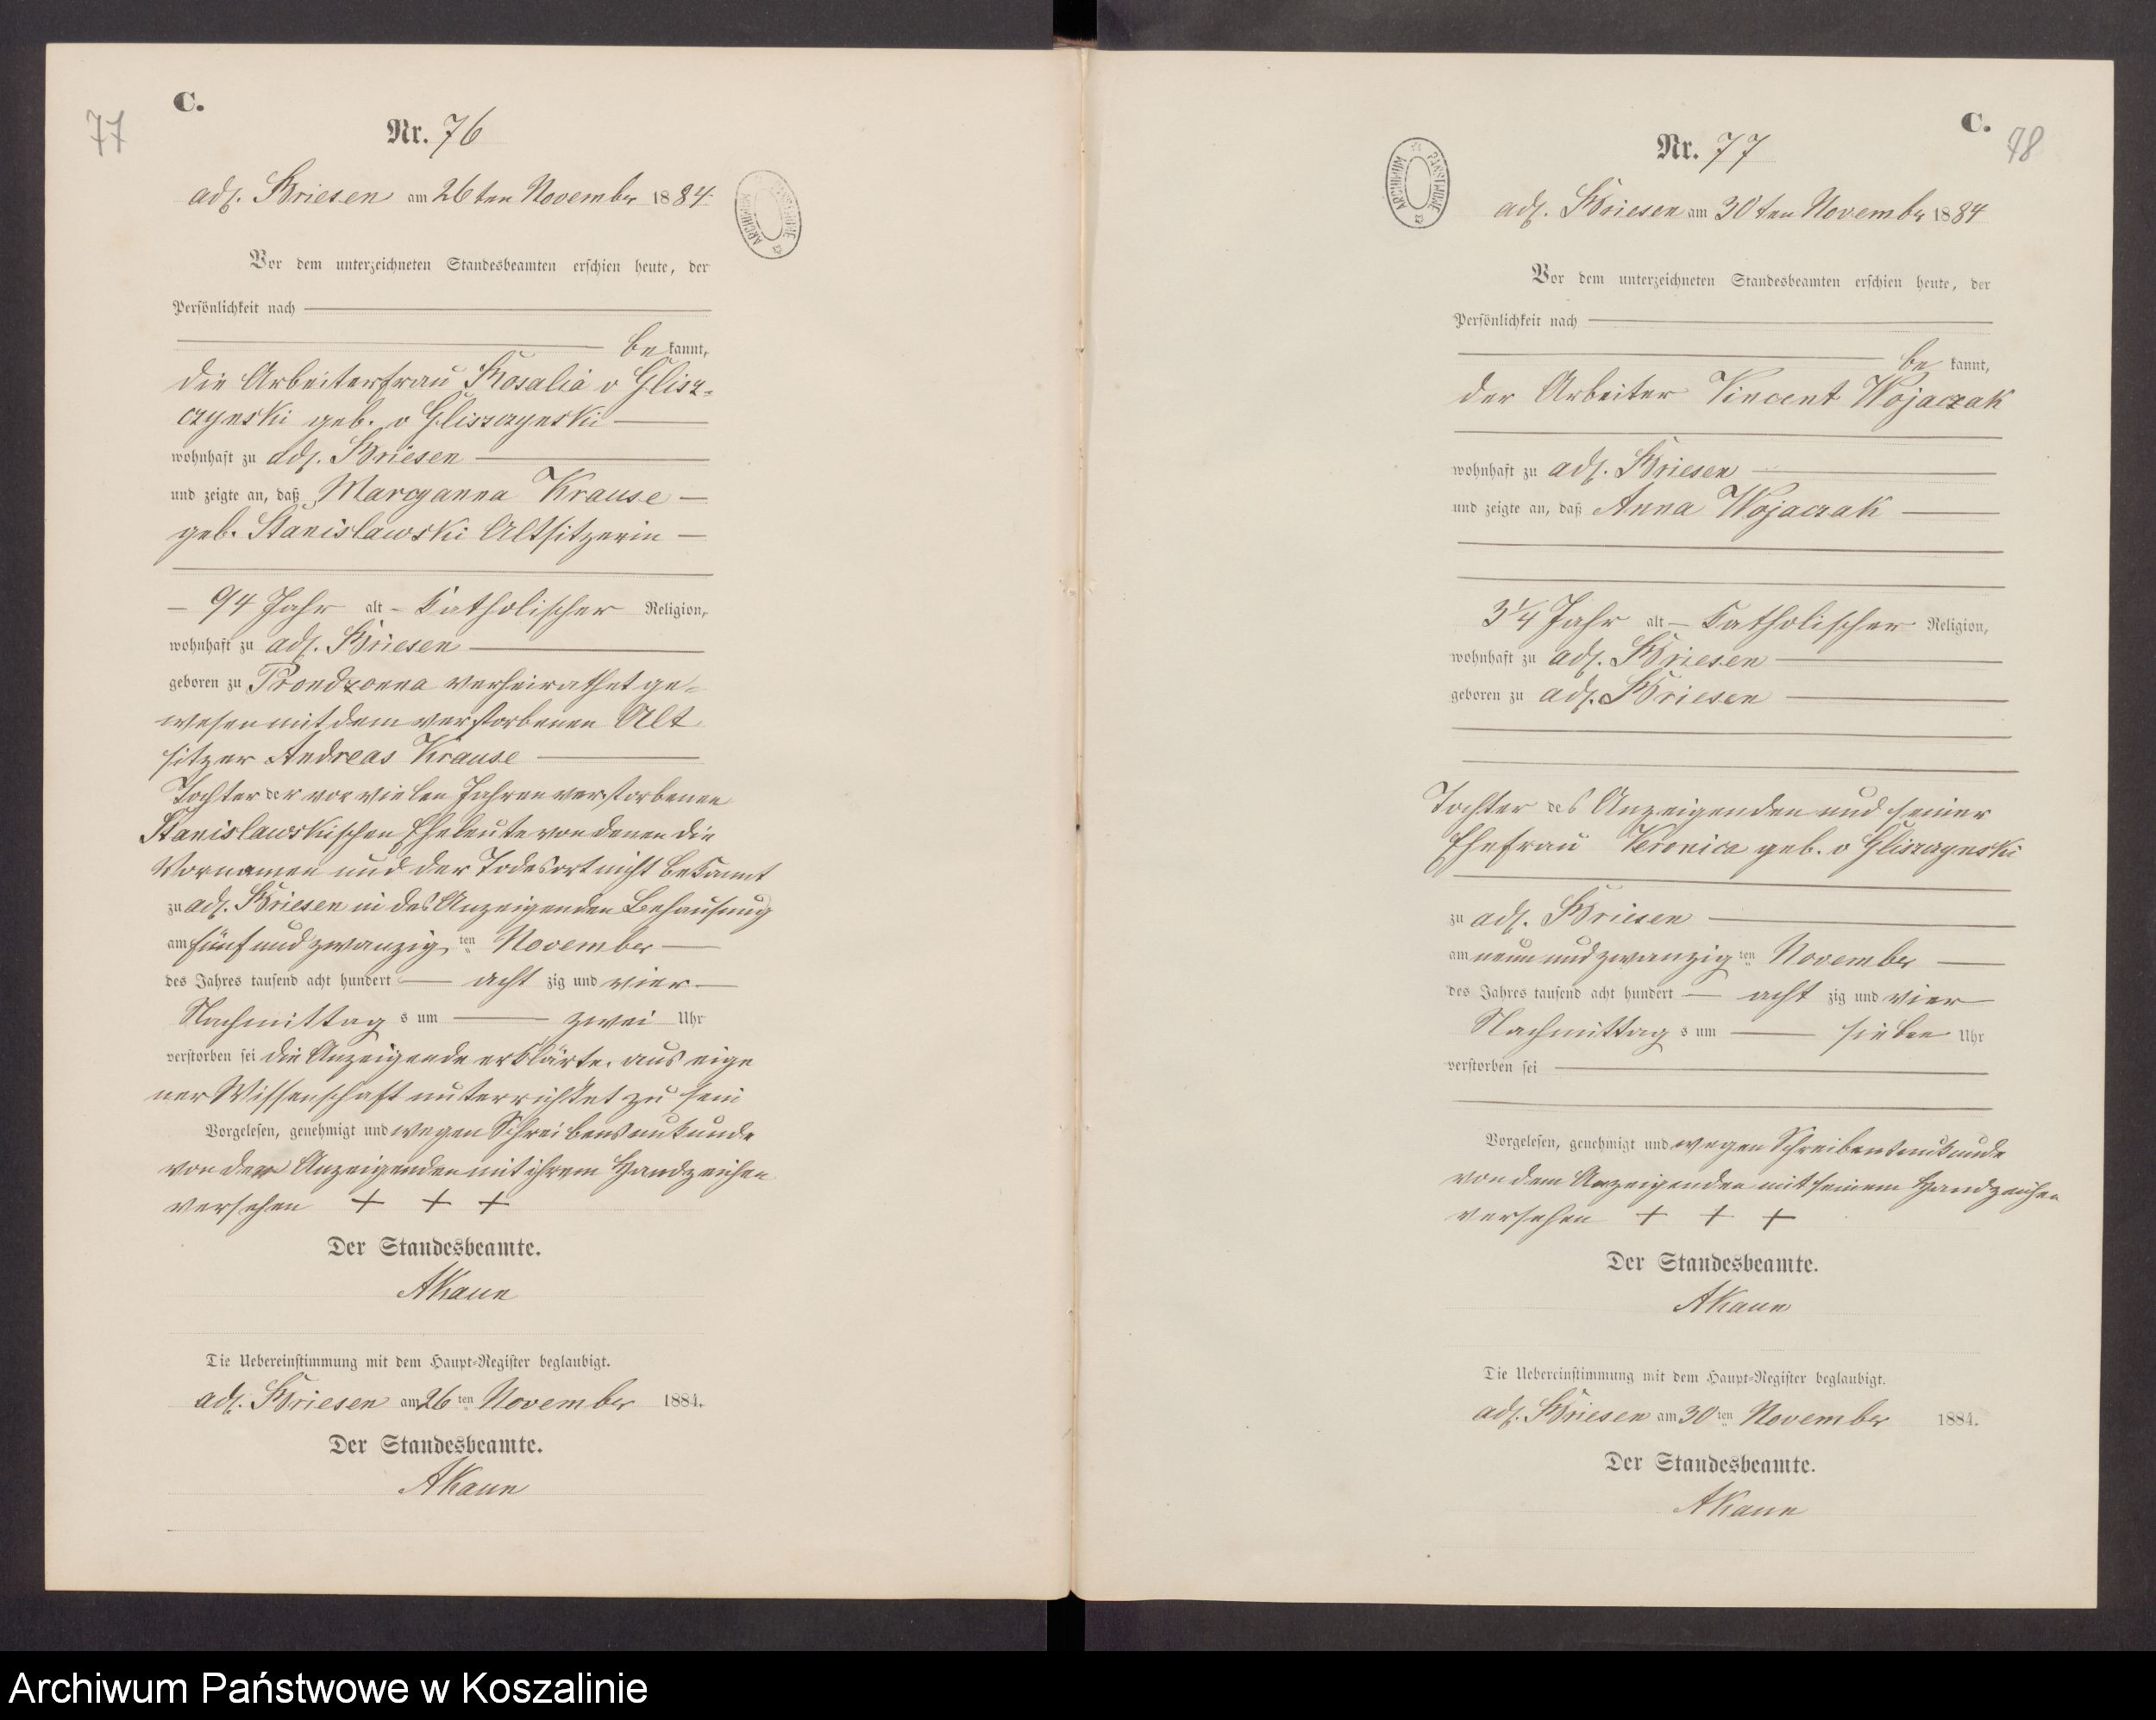 77
C.
Nr. 76
adl. Briesen am 26ten November 1884
ARCHIWUM PAŃSTWOWE
Vor dem unterzeichneten Standesbeamten erschien heute, der
Persönlichkeit nach
be kannt,
die Arbeiterfrau Rosalia v Glisz-
czynski geb. v Gliszczynski
wohnhaft zu adl. Briesen
und zeigte an, daß Marcyanna Krause
geb. Stanislawski Altsitzerin
94 Jahr alt Katholischer Religion,
wohnhaft zu adl. Briesen
geboren zu Prondzonna verheirathet ge-
wesen mit dem verstorbenen Alt
sitzer Andreas Krause
Tochter der vor vielen Jahren verstorbenen
Stanislawskischen Eheleute von denen die
Vornamen und der Todesort nicht bekannt
zu adl. Briesen in des Anzeigenden Behausung
am fünf und zwanzig ten November
des Jahres tausend acht hundert acht zig und vier
Nachmittag s um zwei Uhr
verstorben sei die Anzeigende erklärte, aus eige
ner Wissenschaft unterrichtet zu sein
Vorgelesen, genehmigt und wegen Schreibensunkunde
von der Anzeigenden mit ihrem Handzeichen
versehen + + +
Der Standesbeamte.
AKaun
Die Uebereinstimmung mit dem Haupt-Register beglaubigt.
adl. Briesen am 26 ten November 1884.
Der Standesbeamte.
AKaun
C.
78
Nr. 77
ARCHIWUM PAŃSTWOWE
adl. Briesen am 30ten November 1884
Vor dem unterzeichneten Standesbeamten erschien heute, der
Persönlichkeit nach
be kannt,
der Arbeiter Vincent Wojaczak
wohnhaft zu adl. Briesen
und zeigte an, daß Anna Wojaczak
3 1/4 Jahr alt Katholischer Religion,
wohnhaft zu adl. Briesen
geboren zu adl. Briesen
Tochter des Anzeigenden und seiner
Ehefrau Veronica geb. v Gliszczynski
zu adl. Briesen
am neun und zwanzig ten November
des Jahres tausend acht hundert acht zig und vier
Nachmittag s um sieben Uhr
verstorben sei
Vorgelesen, genehmigt und wegen Schreibensunkunde
von dem Anzeigenden mit seinem Handzeichen
versehen + + +
Der Standesbeamte.
AKaun
Die Uebereinstimmung mit dem Haupt-Register beglaubigt.
adl. Briesen am 30 ten November 1884.
Der Standesbeamte.
AKaun
Archiwum Państwowe w Koszalinie